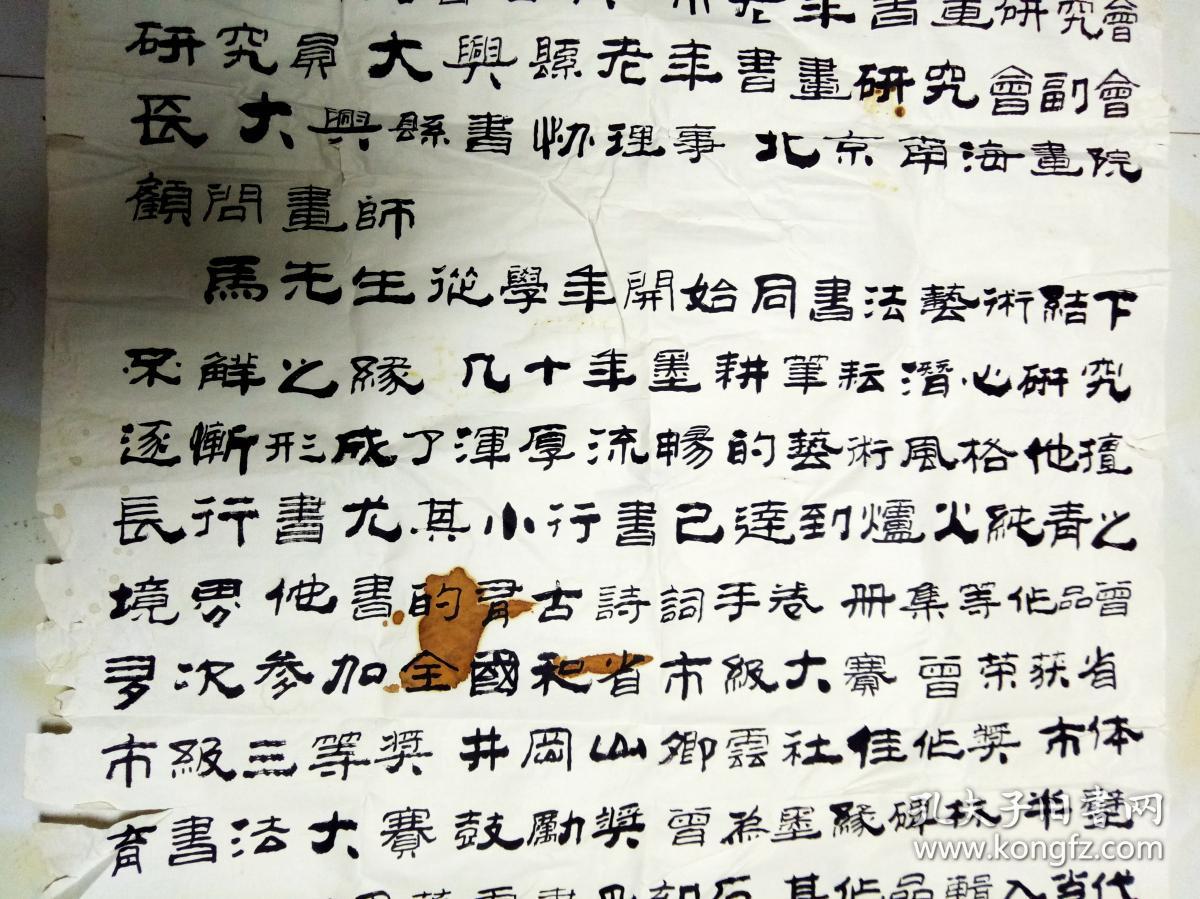 市老年書畫研究會
研究員 大興縣老年書畫研究會副會
長 大興縣書协理事 北京南海畫院
顧問畫師
馬先生從學年開始同書法藝術結下
不解之緣 几十年墨耕筆耘潛心研究
逐慚形成了渾厚流暢的藝術風格他擅
長行書尤其小行書已達到爐火純青之
境界 他書的 古詩詞手卷 册集等作品曾
多次参加全國和省市級大賽 曾荣获省
市級三等奖 井岡山卿雲社佳作奖 市体
育書法大賽鼓勵奖 曾为墨緣碑林
刻石 其作品輯入當代
孔夫子旧書网
www.kongfz.com